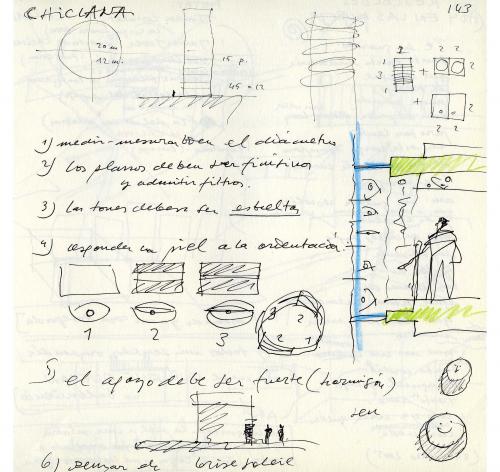 CHICLANA
143
20 m
12 m.
15 p.
45 ÷ 12
1
3
1
+
2 2
+
2
2 2
1) medir-mesurar bien el diámetro
2) los planos deben ser finísimos
y admitir filtros.
3) las torres deben ser esbeltas
4) responder la piel a la orientación.
1 2 3
3 2
2 1
5) el apoyo debe ser fuerte (hormigón)
6) pensar de brise soleil